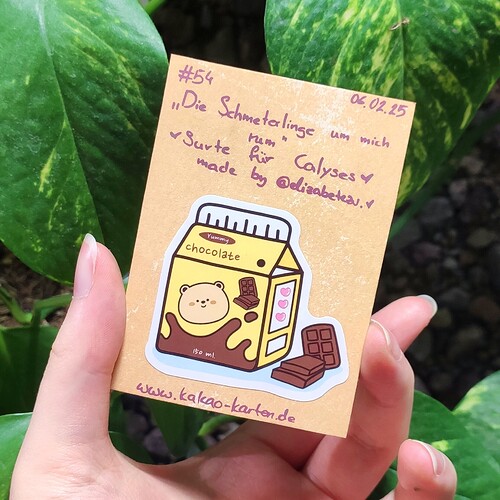 #54
06.02.25
„Die Schmetterlinge um mich
rum"
♥Surte für Calyses♥
made by @elizabeteav.♥
Yummy
chocolate
150 ml
www.kakao-karten.de